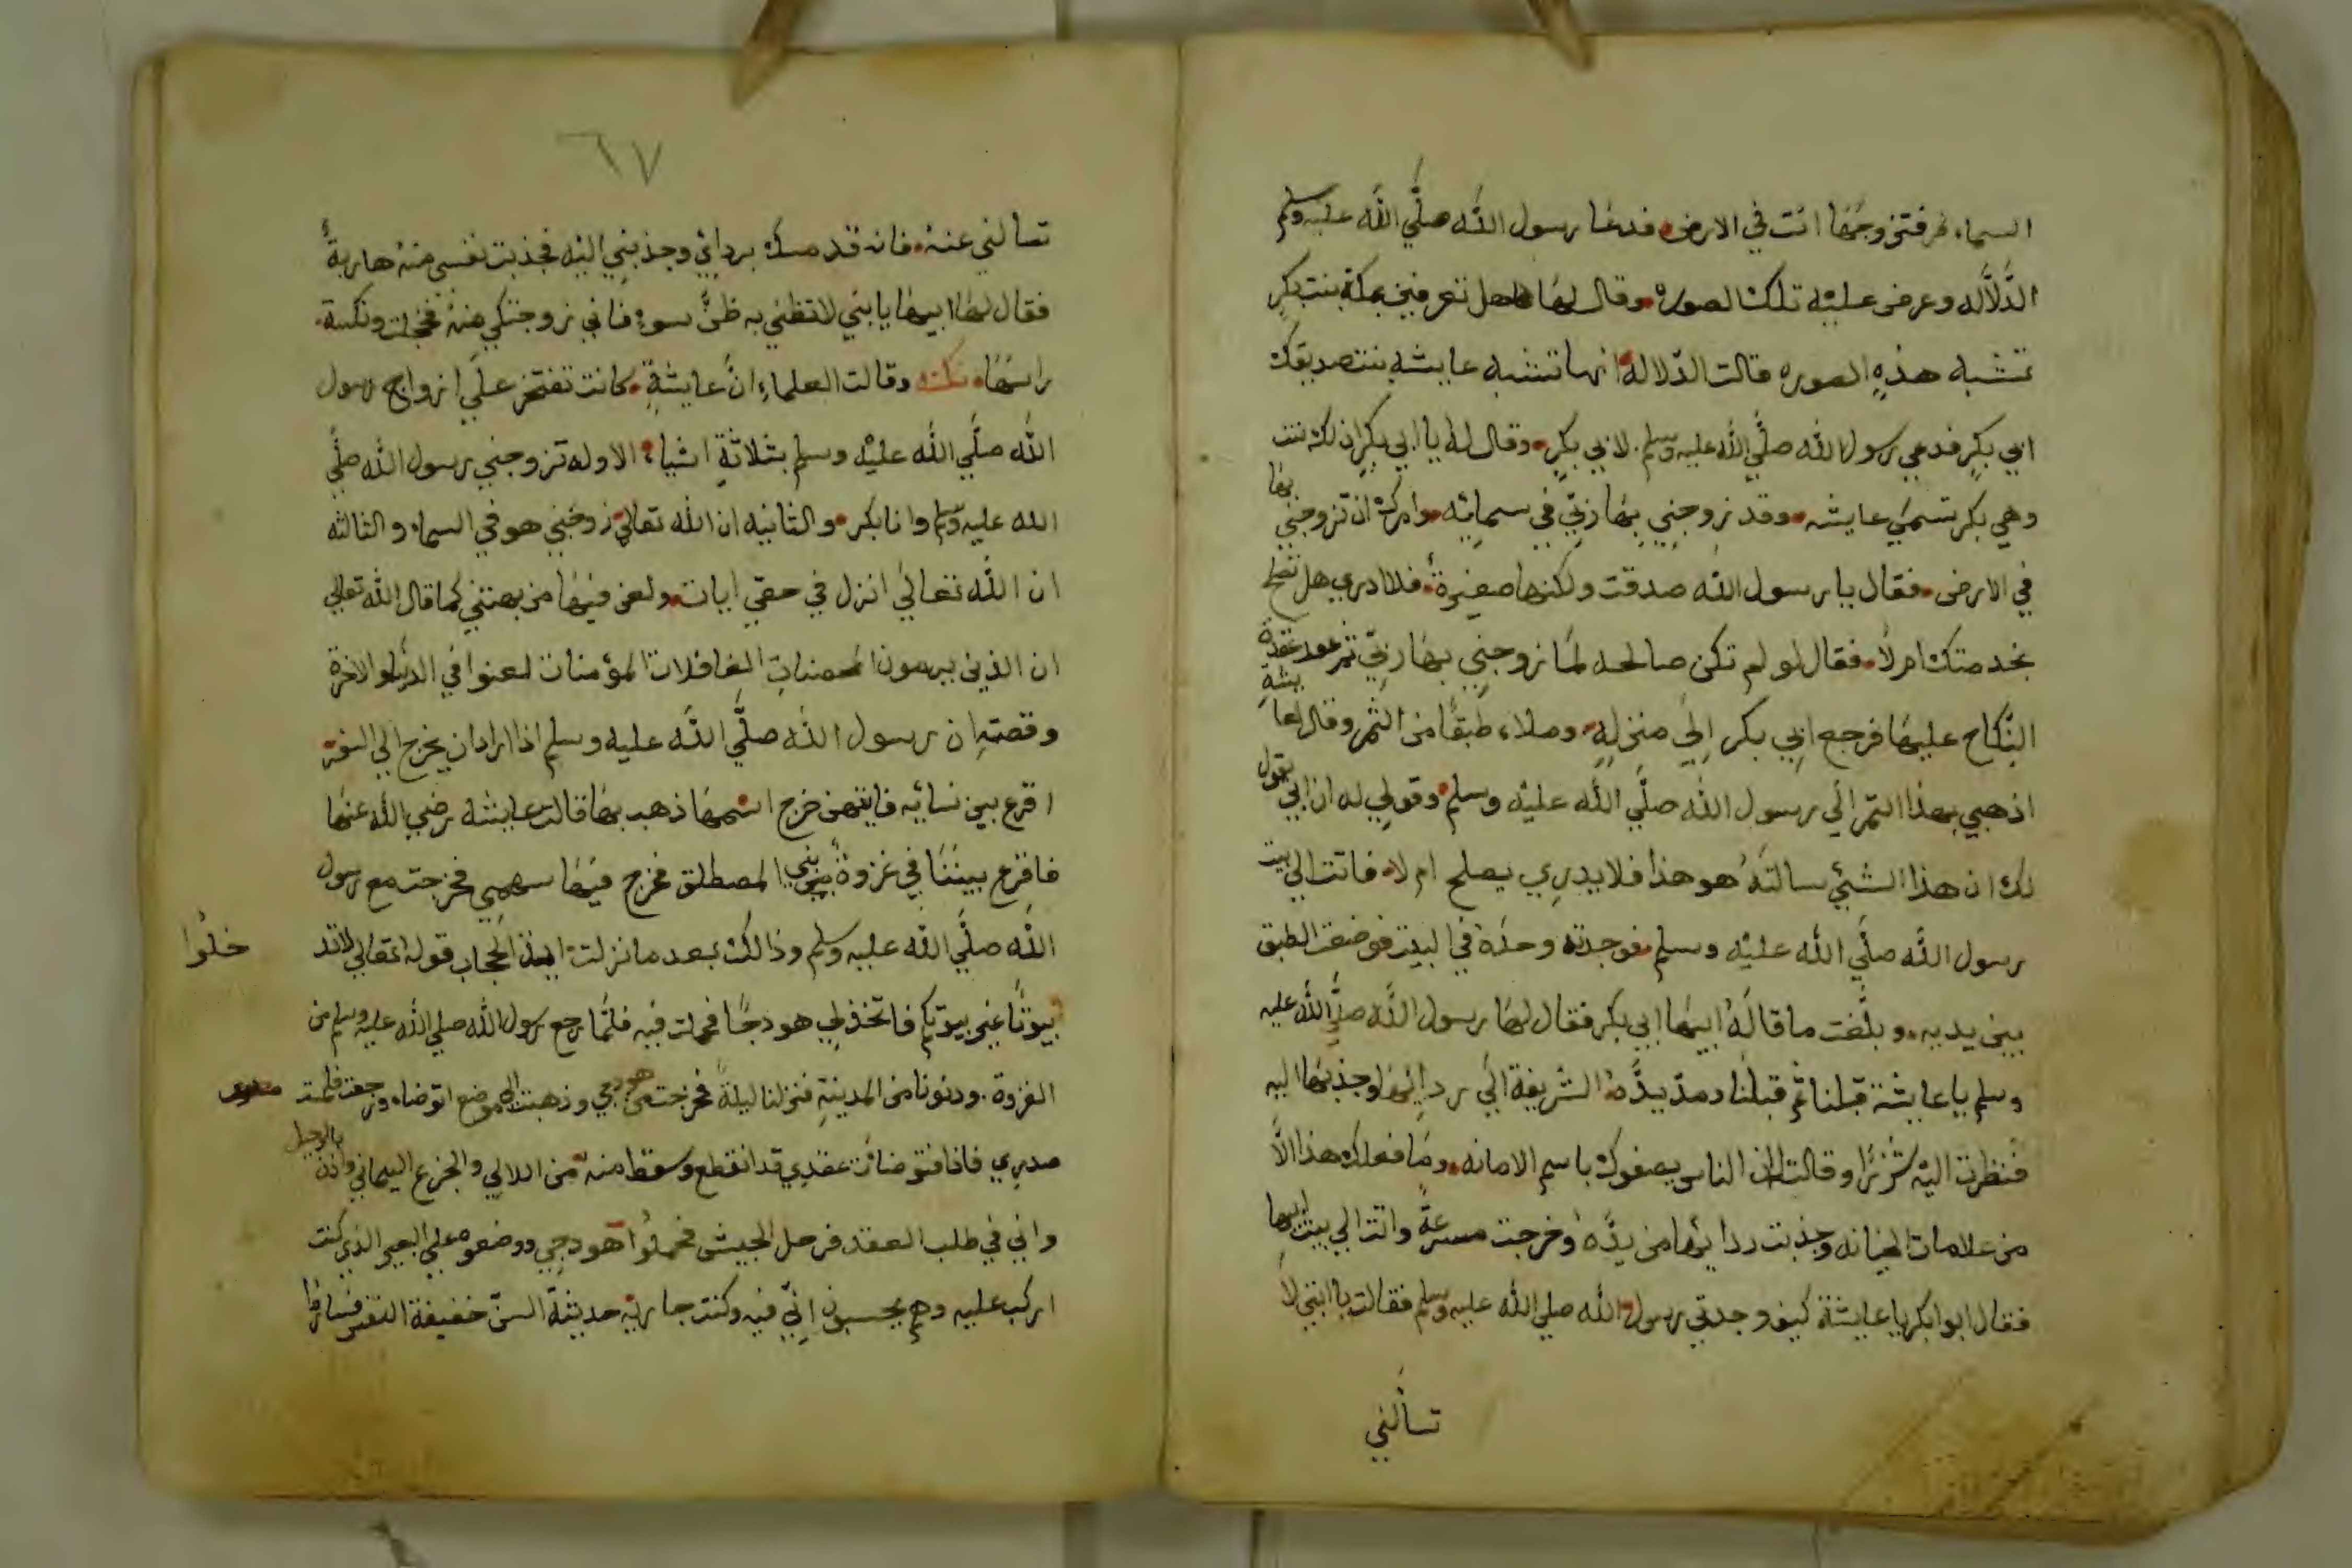 السماء فتزوجها انت في الارض فدعا رسول الله صلي الله عليه وسلم
الدلاله وعرض عليه تلك الصوره وقال لها هل تعرفين بمكة بنت بكر
تشبه هذه الصوره قالت الدلاله انها تشبه عايشه بنت صديقك
ابي بكر فدعي رسول الله صلي الله عليه وسلم لابي بكر وقال له يا ابي بكر ان لك بنت
وهي بكر تسمي عايشه وقد زوجني بها ربي في سمائه وامرك ان تزوجني بها
في الارض فقال يا رسول الله صدقت ولكنها صغيرة فلا ادري هل تصلح
بخدمتك ام لا فقال لو لم تكن صالحه لما زوجني بها ربي ثم عقد عقدة
النكاح عليها فرجع ابي بكر الي منزله وملاء طبقا من الثمر وقال لعايشة
اذهبي بهذا التمر الي رسول الله صلي الله عليه وسلم وقولي له ان ابي يقول
لك ان هذا الشيء سالته هو هذا فلا يدري يصلح ام لا فاتت الي بيت
رسول الله صلي الله عليه وسلم فوجدته وحده في البيت فوضعت الطبق
بين يديه وبلغت ما قاله ابيها ابي بكر فقال لها رسول الله صلي الله عليه
وسلم يا عايشة قبلنا ثم قبلنا ومد يده الشريفة الي ردائها وجذبها اليه
فنظرت اليه شزرا وقالت ان الناس يصفوك باسم الامانه وما فعلك هذا الا
من علامات الخيانه وجذبت ردائها من يده وخرجت مسرعة واتت الي بيت ابيها
فقال ابوا بكر يا عايشة كيف وجدتي رسول الله صلي الله عليه وسلم فقالت يا ابتي لا
تسالني
٦٧
تسالني عنه فانه قد مسك بردائي وجذبني اليه فجذبت نفسي منه هاربة
فقال لها ابيها يا بنتي لا تظني به ظن سوء فاني زوجتكي منه فخجلت ونكسة
راسها نكته وقالت العلماء ان عايشة كانت تفتخر علي ازواج رسول
الله صلي الله عليه وسلم بثلاثة اشياء الاوله تزوجني رسول الله صلي
الله عليه وسلم وانا بكر والثانيه ان الله تعالي زوجني هو في السماء والثالثه
ان الله تعالي انزل في حقي ايات ولعن فيها من بهتني كما قال الله تعالي
ان الذين يرمون المحصنات الغافلات المؤمنات لعنوا في الدنيا والاخرة
وقصته ان رسول الله صلي الله عليه وسلم اذا اراد ان يخرج الي السفر
اقرع بين نسائه فايتهن خرج اسمها ذهب بها قالت عايشه رضي الله عنها
فاقرع بيننا في غزوة بني المصطلق فخرج فيها سهمي فخرجت مع رسول
الله صلي الله عليه وسلم وذالك بعد ما نزلت الحجاب قوله تعالي لا تد
خلوا
بيوتا غير بيوتكم فاتخذ لي هودجا فحملت فيه فلما رجع رسول الله صلي الله عليه وسلم من
الغزوة ودنونا من المدينة فنزلنا ليلة فخرجت من هودجي وذهبت الي موضع اتوضاء ورجعت فلمست
صدري فاذا عقدي قد انقطع وسقط منه من اللالي والجزع اليماني واذن بالرحيل
واني في طلب العقد فرحل الجيش فحملوا هودجي ووضعوه علي البعير الذي كنت
اركب عليه وهم يحسبون اني فيه وكنت جارية حديثة السن خفيفة النفس فساروا